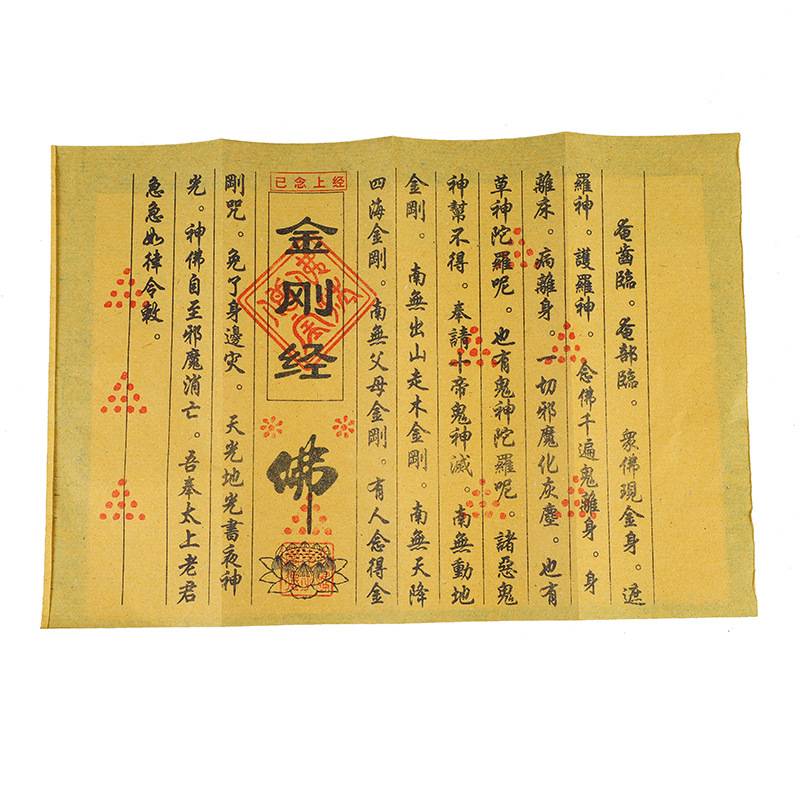 奄齒臨。奄部臨。衆佛現金身。遮
羅神。護羅神。念佛千遍鬼離身。身
離床。病離身。一切邪魔化灰塵。也有
草神陀羅呢。也有鬼神陀羅呢。諸惡鬼
神幫不得。奉請十帝鬼神滅。南無動地
金剛。南無出山走木金剛。南無天降
四海金剛。南無父母金剛。有人念得金
已念上经
金刚经
佛
剛咒。免了身邊灾。天光地光書夜神
光。神佛自至邪魔消亡。吾奉太上老君
急急如律令敕。